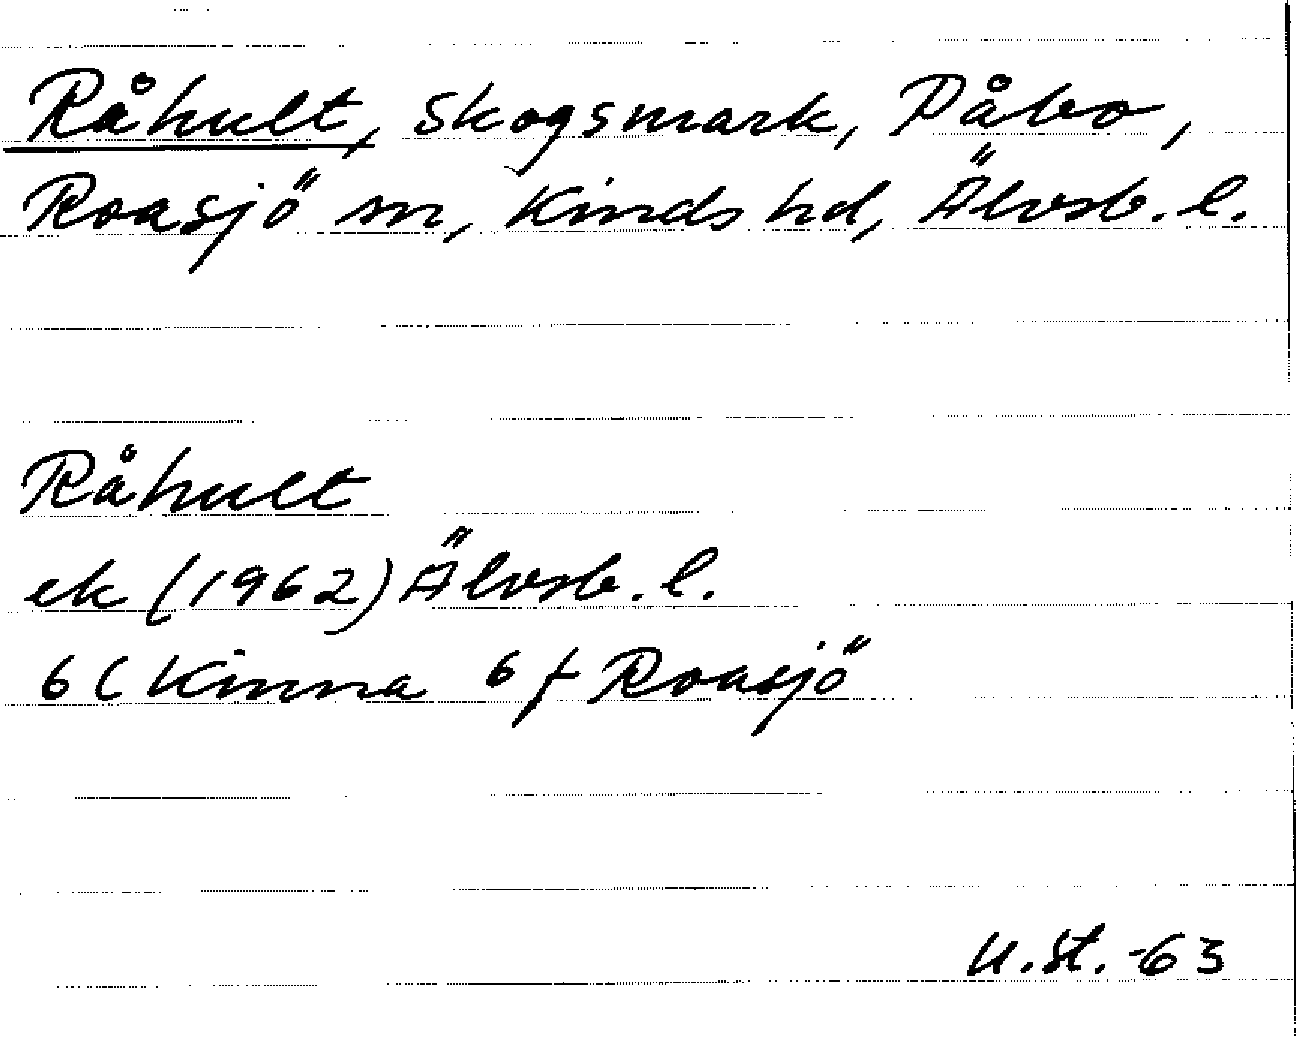 Råhult, Skogsmark, Påbo,
Roasjö sn, Kinds hd, Älvsb. l.
Råhult
ek (1962) Älvsb. l.
6C Kinna 6 f Roasjö
U.St. -63